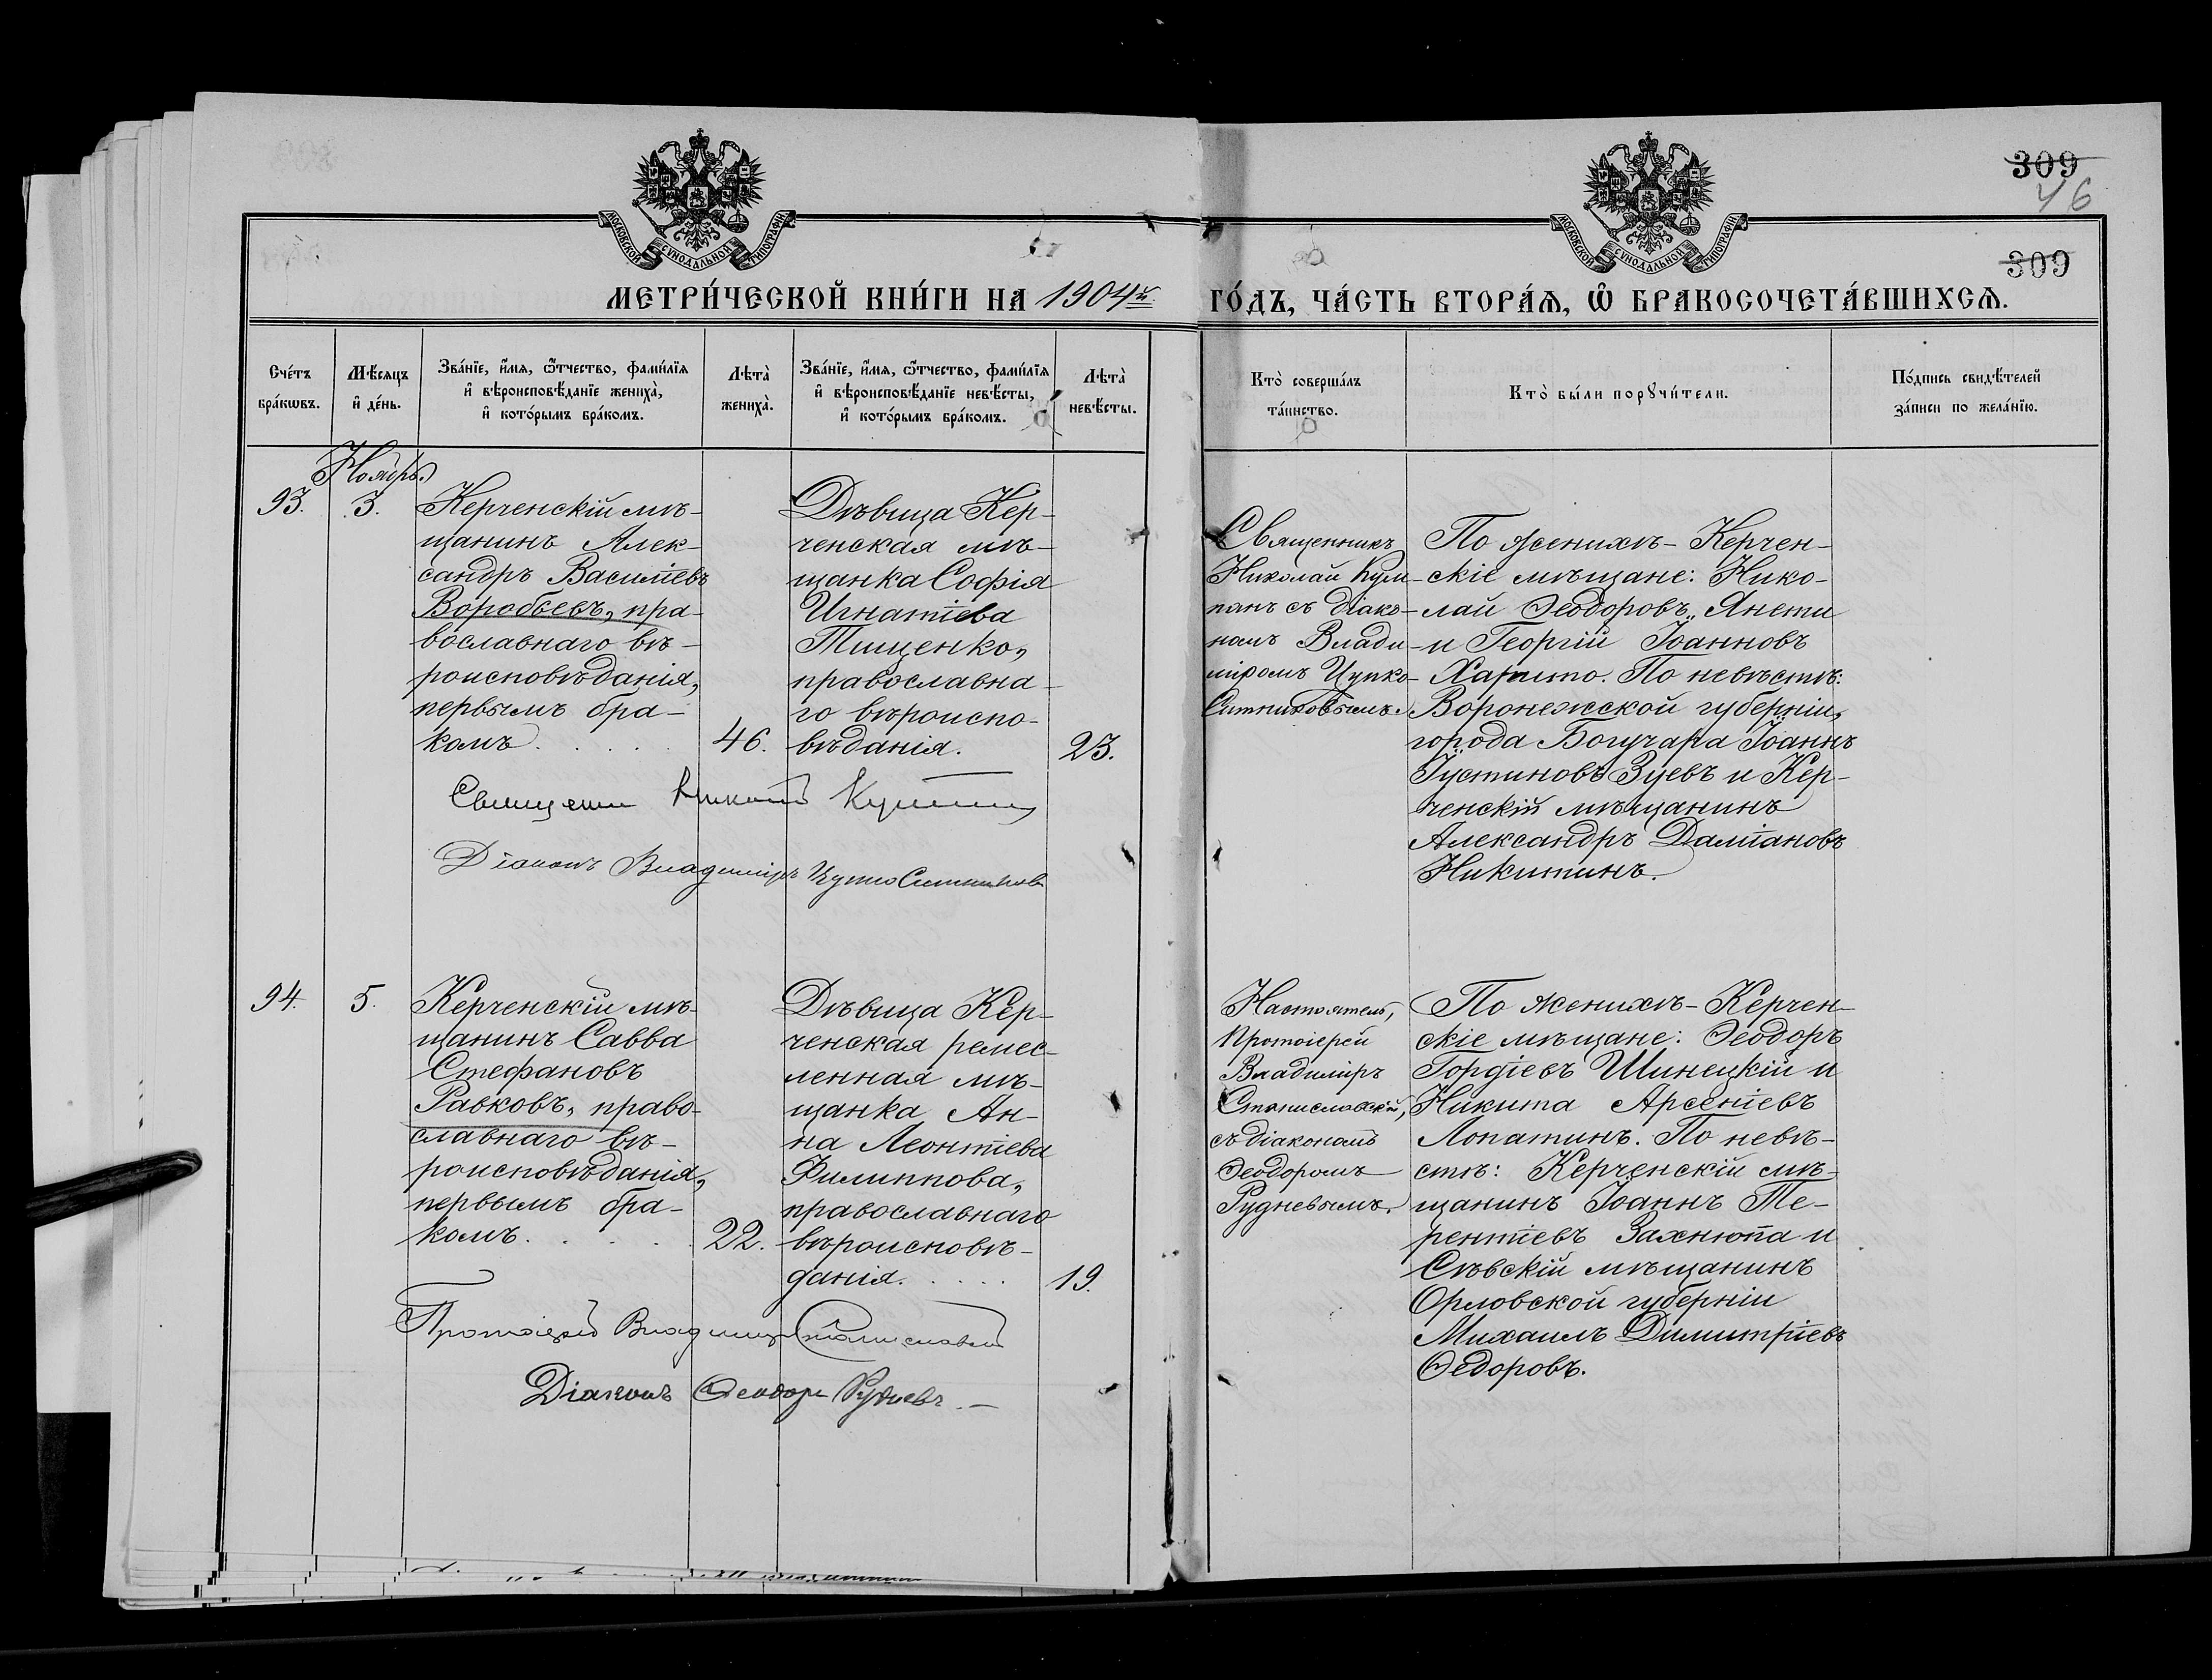 309
46
309
МОСКОВСКОЙ СѴНОДАЛЬНОЙ ТИПОГРАФІИ
МОСКОВСКОЙ СѴНОДАЛЬНОЙ ТИПОГРАФІИ
МЕТРИ́ЧЕСКОЙ КНИ́ГИ НА 1904й ГО́ДЪ, ЧА́СТЬ ВТОРА́Ѧ, Ѡ҆ БРАКОСОЧЕТА́ВШИХСѦ.
Сче́тъ
бра́кѡвъ.
Мѣ́сяцъ
и҆ де́нь.
Зва́нїе, и҆́мя, ѻ҆́тчество, фами́лїя
и҆ вѣроисповѣ́данїе жениха̀,
и҆ кото́рымъ бра́комъ.
Лѣта̀
жениха̀.
Зва́нїе, и҆́мя, ѻ҆́тчество, фами́лїя
и҆ вѣроисповѣ́данїе невѣ́сты,
и҆ кото́рымъ бра́комъ.
Лѣта̀
невѣ́сты.
Кто̀ соверша́лъ
та́инство.
Кто̀ бы́ли порꙋчи́тели.
По́дпись свидѣ́телей
за́писи по жела́нїю.
Ноябрь
93.
3.
Керченскій мѣ-
щанинъ Алек-
сандръ Василіевъ
Воробьевъ, пра-
вославнаго вѣ-
роисповѣданія,
первымъ бра-
комъ . . . . .
46.
Дѣвица Кер-
ченская мѣ-
щанка Софія
Игнатіева
Тищенко,
православна-
го вѣроиспо-
вѣданія.
23.
Священникъ
Николай Кум-
панъ съ діако-
номъ Влади-
міромъ Цупко-
Ситниковымъ.
По женихѣ - Керчен-
скіе мѣщане: Нико-
лай Ѳеодоровъ Янети
и Георгій Іоанновъ
Харито. По невѣстѣ:
Воронежской губерніи,
города Богучара Іоаннъ
Іустиновъ Зуевъ и Кер-
ченскій мѣщанинъ
Александръ Даміановъ
Никитинъ.
Николай
Діаконъ Владиміръ Цупко Ситниковъ
94.
5.
Керченскій мѣ-
щанинъ Савва
Стефановъ
Равковъ, право-
славнаго вѣ-
роисповѣданія,
первымъ бра-
комъ . . . . .
22.
Дѣвица Кер-
ченская ремес-
ленная мѣ-
щанка Ан-
на Леонтіева
Филиппова,
православнаго
вѣроисповѣ-
данія. . . . .
19.
Настоятель,
Протоіерей
Владиміръ
Станиславскій,
съ діакономъ
Ѳеодоромъ
Рудневымъ.
По женихѣ - Керчен-
скіе мѣщане: Ѳеодоръ
Гордіевъ Шинецкій и
Никита Арсеніевъ
Лопатинъ. По невѣ-
стѣ: Керченскій мѣ-
щанинъ Іоаннъ Те-
рентіевъ Захнюта и
Сѣвскій мѣщанинъ
Орловской губерніи
Михаилъ Димитріевъ
Ѳедоровъ.
Протоіерей Владиміръ Станиславскій
Діаконъ Ѳеодоръ Рудневъ. -